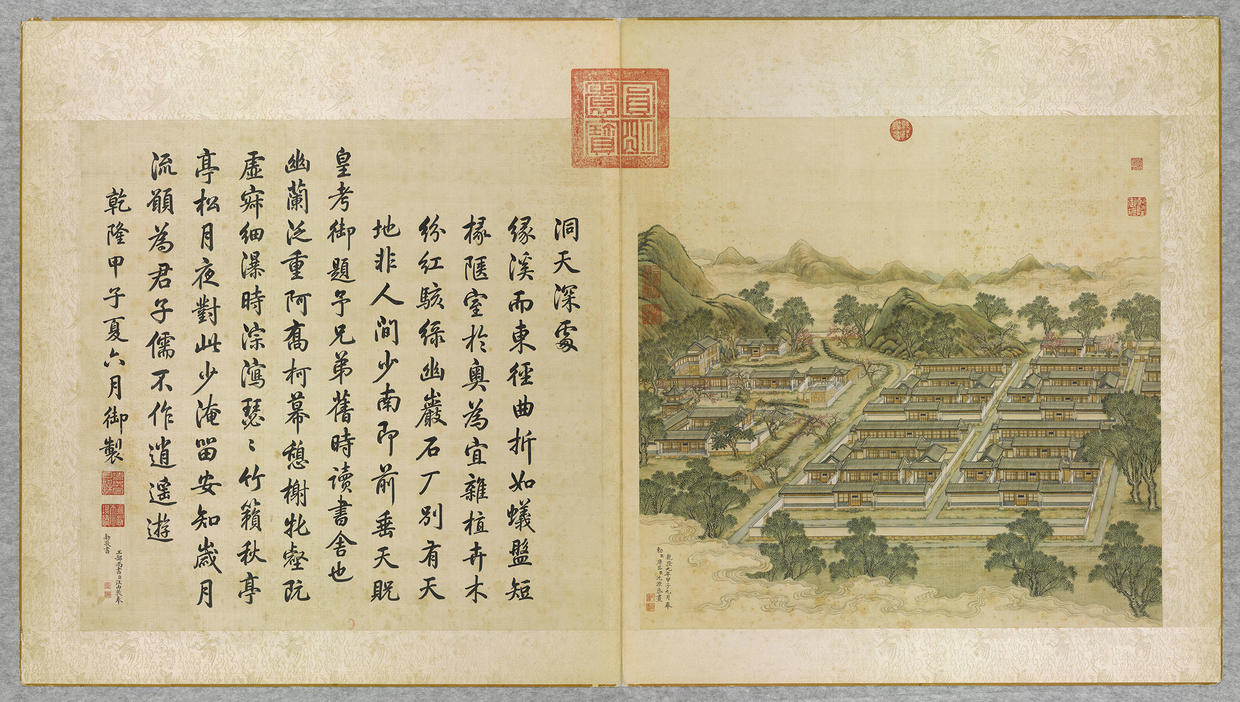 圓明園寶
洞天深處
緣溪而東徑曲折如蟻盤短
椽陋室於奧為宜雜植卉木
紛紅駭綠幽巖石厂別有天
地非人間少南即前垂天貺
皇考御題予兄弟舊時讀書舍也
幽蘭泛重阿喬柯幕憩榭牝壑既
虛寂細瀑時淙瀉瑟〻竹籟秋亭
亭松月夜對此少淹留安知歲月
流願為君子儒不作逍遙遊
乾隆甲子夏六月御製
工部尚書臣汪由敦奉
敕敬書
乾隆九年甲子九月奉
敕臣唐岱臣沈源恭畫